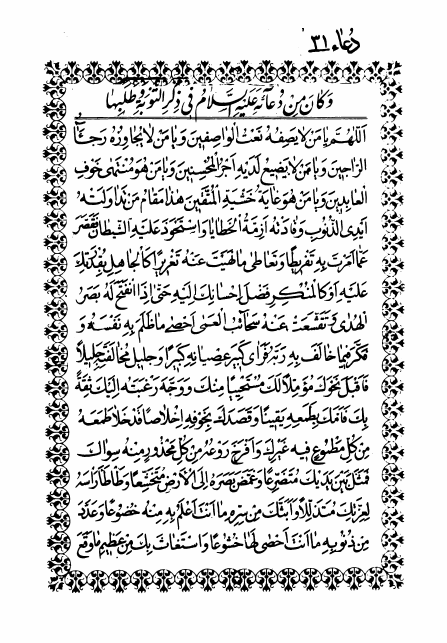 دعاء ٣١
وَكانَ مِنْ دُعآئِهِ عَلَيْهِ السَّلامُ فى ذِكْرِ التَّوْبَةِ وَطَلَبِها
اَللّهُمَّ يا مَنْ لا يَصِفُهُ نَعْتُ الْواصِفينَ وَيا مَنْ لا يُجاوِزُهُ رَجآءُ
الرّاجينَ وَيا مَنْ لا يَضيعُ لَدَيْهِ اَجْرُ الْمُحْسِنينَ وَيا مَنْ هُوَ مُنْتَهى خَوْفِ
الْعابِدينَ وَيا مَنْ هُوَ غايَةُ خَشْيَةِ الْمُتَّقينَ هذا مَقامُ مَنْ تَداوَلَتْهُ
اَيْدِى الذُّنُوبِ وَقادَتْهُ اَزِمَّةُ الْخَطايا وَاسْتَحْوَذَ عَلَيْهِ الشَّيْطانُ فَقَصَّرَ
عَمّا اَمَرْتَ بِهِ تَفْريطًا وَتَعاطى ما نَهَيْتَ عَنْهُ تَغْريرًا كَالْجاهِلِ بِقُدْرَتِكَ
عَلَيْهِ اَوْ كَالْمُنْكِرِ فَضْلَ اِحْسانِكَ اِلَيْهِ حَتّى اِذَا انْفَتَحَ لَهُ بَصَرُ
الْهُدى وَتَقَشَّعَتْ عَنْهُ سَحآئِبُ الْعَمى اَحْصى ما ظَلَمَ بِهِ نَفْسَهُ وَ
فَكَّرَ فيما خالَفَ بِهِ رَبَّهُ فَرَاى كَبيرَ عِصْيانِهِ كَبيرًا وَجَليلَ مُخالَفَتِهِ جَليلًا
فَاَقْبَلَ نَحْوَكَ مُؤَمِّلًا لَكَ مُسْتَحْيِيًا مِنْكَ وَوَجَّهَ رَغْبَتَهُ اِلَيْكَ ثِقَةً
بِكَ فَاَمَّكَ بِطَمَعِهِ يَقينًا وَقَصَدَكَ بِخَوْفِهِ اِخْلاصًا قَدْ خَلا طَمَعُهُ
مِنْ كُلِّ مَطْمُوعٍ فيهِ غَيْرِكَ وَاَفْرَخَ رَوْعُهُ مِنْ كُلِّ مَحْذُورٍ مِنْهُ سِواكَ
فَمَثَلَ بَيْنَ يَدَيْكَ مُتَضَرِّعًا وَغَمَّضَ بَصَرَهُ اِلَى الْاَرْضِ مُتَخَشِّعًا وَطَاْطَاَ رَاْسَهُ
لِعِزَّتِكَ مُتَذَلِّلًا وَاَبَثَّكَ مِنْ سِرِّهِ ما اَنْتَ اَعْلَمُ بِهِ مِنْهُ خُضُوعًا وَعَدَّدَ
مِنْ ذُنُوبِهِ ما اَنْتَ اَحْصى لَها خُشُوعًا وَاسْتَغاثَ بِكَ مِنْ عَظيمِ ما وَقَعَ